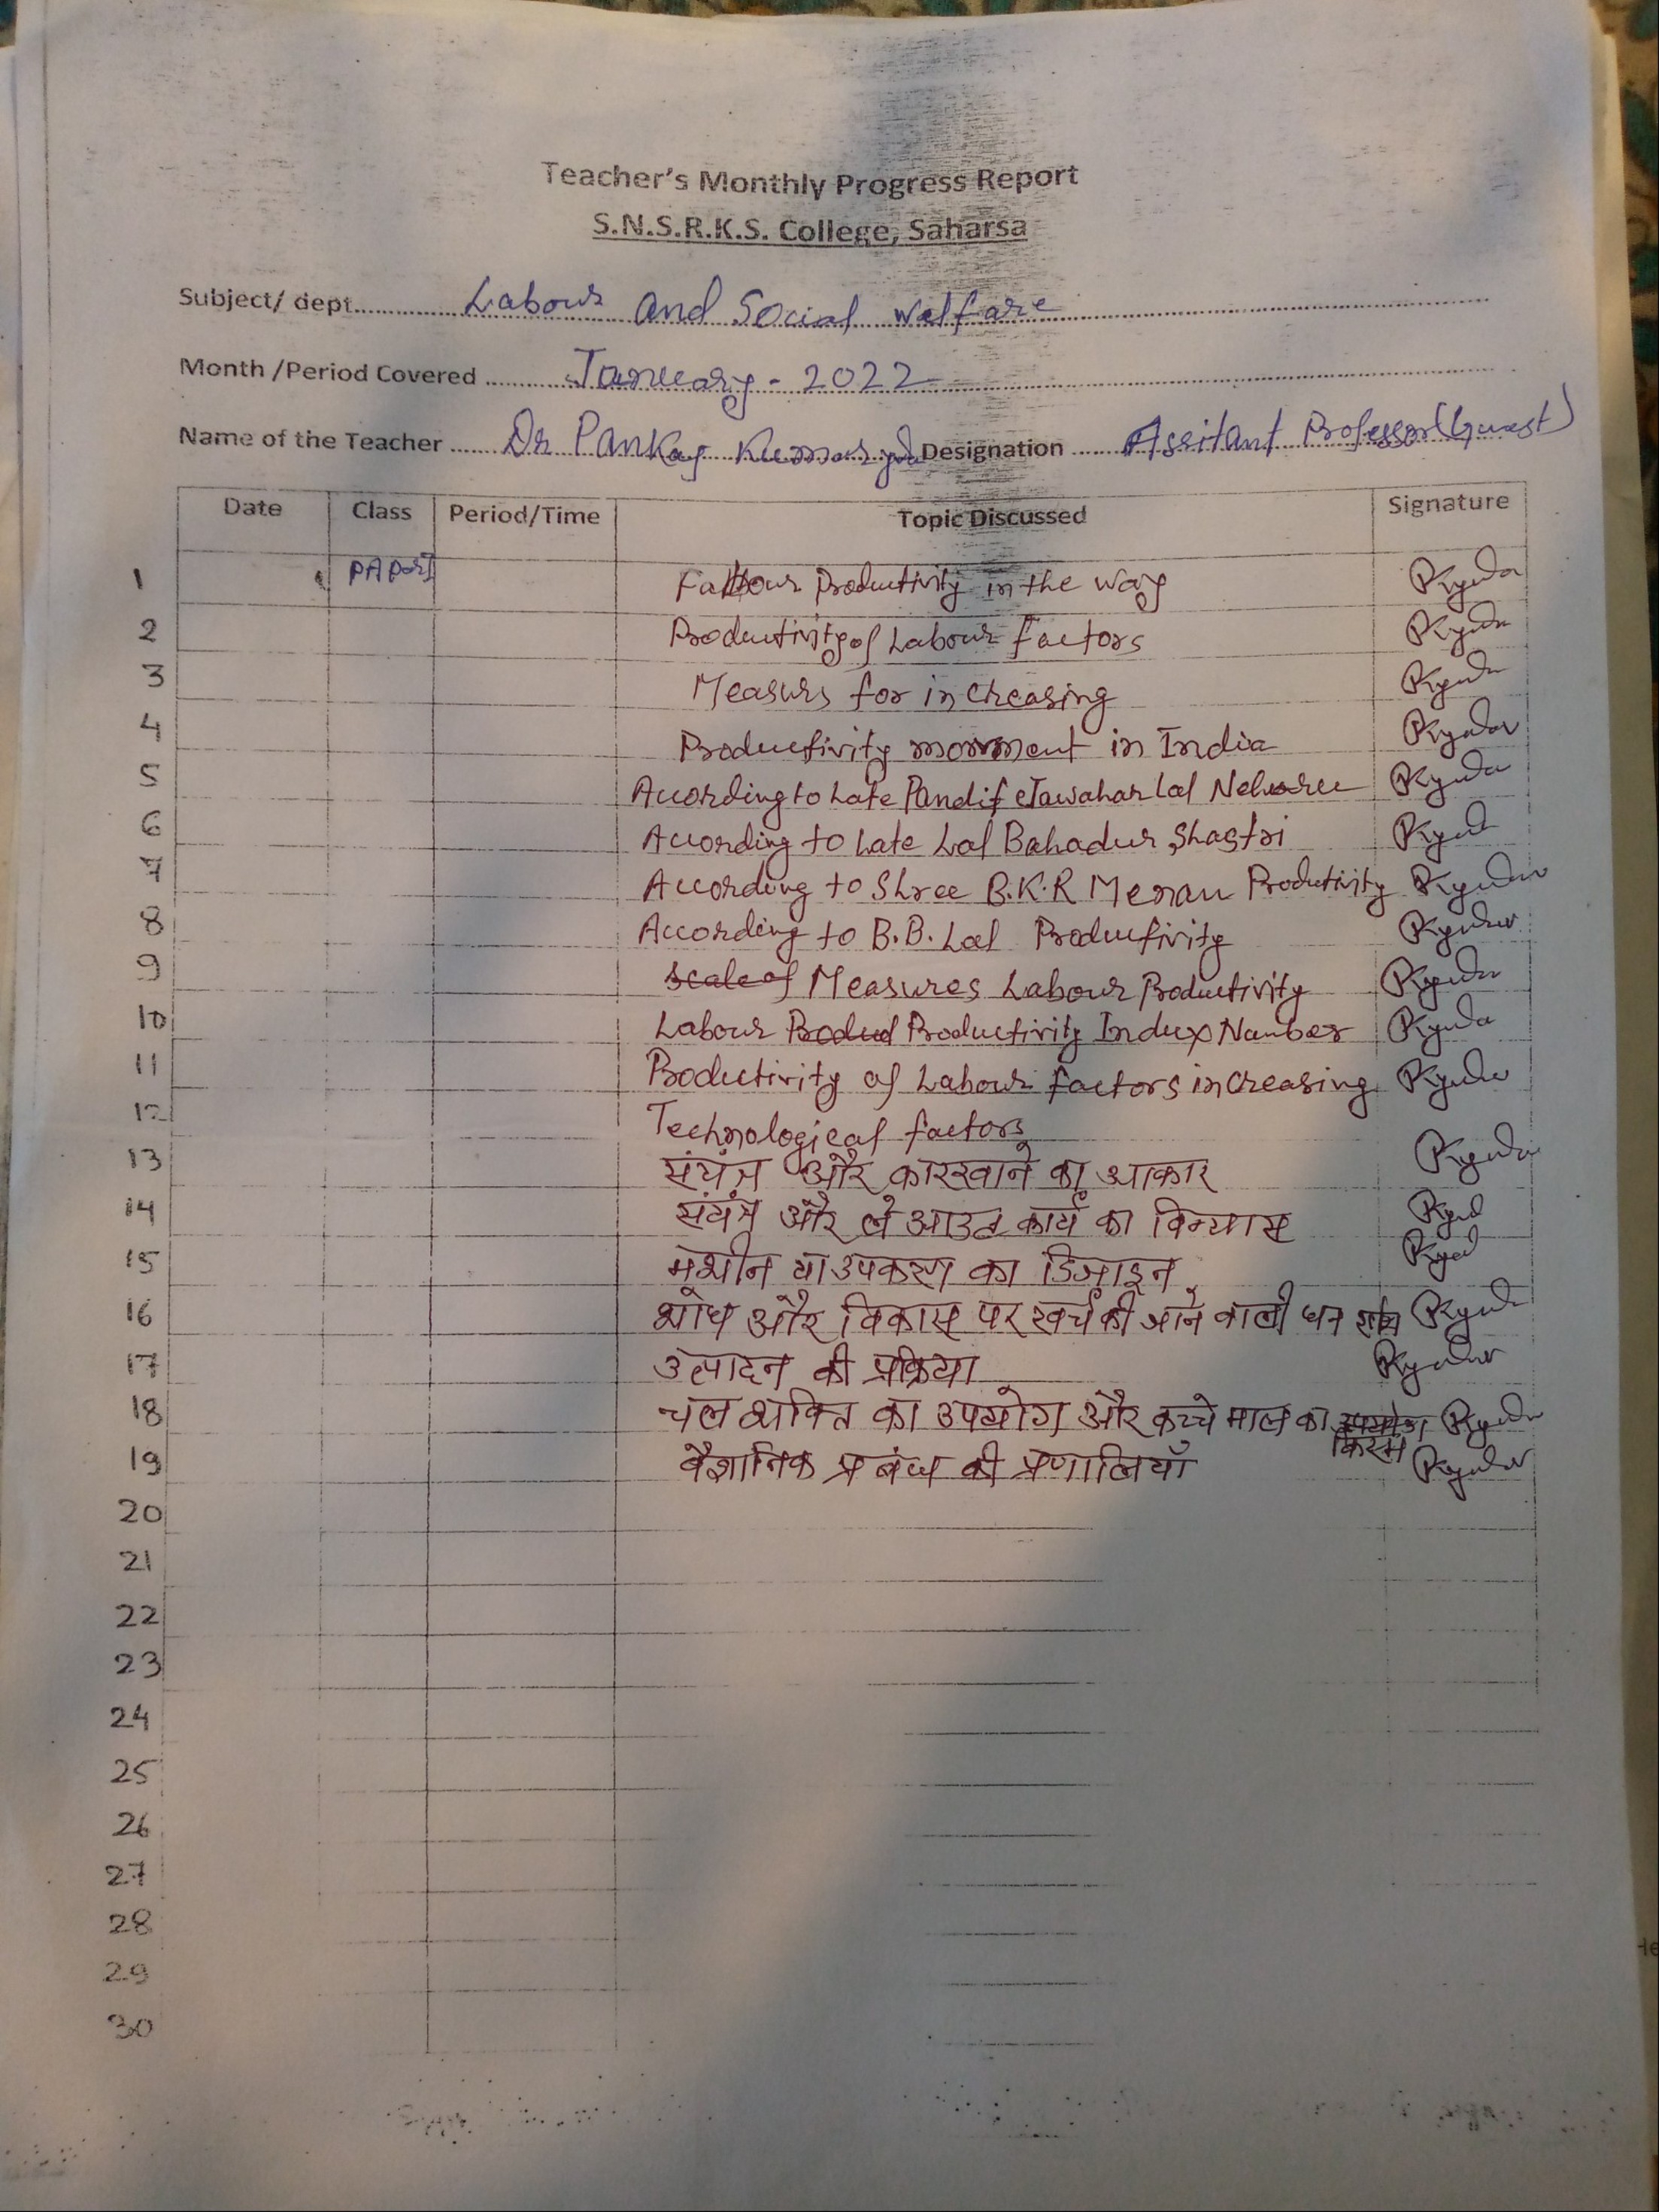 Teacher's Monthly Progress Report
S.N.S.R.K.S. College, Saharsa
Subject/ dept. Labour and Social Welfare
Month /Period Covered January - 2022
Name of the Teacher Dr Pankaj Kumar Designation Assitant Professor (Guest)
Date Class Period/Time Topic Discussed Signature
1 Productivity in the way
2 Productivity of Labour factors
3 Measurs for increasing
4 Productivity in India
5 According to Late Pandit Jawahar Lal
6 According to Late Lal Bahadur Shastri
7 According to Shree B.K.R Menan Productivity
8 According to B.B. Lal Productivity
9 Measures Labour Productivity
10 Labour Productivity Index Number
11 Productivity of Labour factors increasing
12 Technological factors
13 संयंत्र और कारखाने का आकार
14 संयंत्र और ले आउट कार्य का विन्यास
15 मशीन या उपकरण का डिजाइन
16 शोध और विकास पर खर्च की जाने वाली धन
17 उत्पादन की प्रक्रिया
18 चल शक्ति का उपयोग और कच्चे माल का किस्म
19 वैज्ञानिक प्रबंध की प्रणालियाँ
20
21
22
23
24
25
26
27
28
29
30